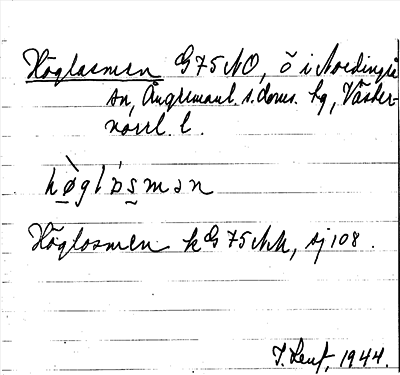 Höglosmen G75NO, ö i Nordingrå
sn, Ångermanl. s. doms. hg, Väster-
norrl. l.
hø̀gl'ɔsmən
Höglosmen k G75NN, sj 108.
1944.